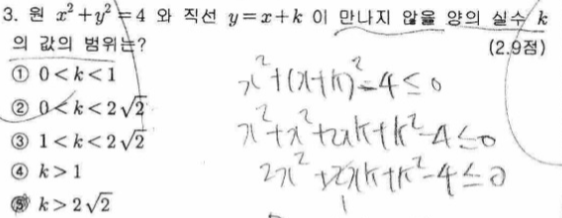 3. 원 x²+y²=4 와 직선 y=x+k 이 만나지 않을 양의 실수 k
의 값의 범위는?
(2.9점)
① 0<k<1
② 0<k<2√2
③ 1<k<2√2
④ k>1
⑤ k>2√2
x²+(x+k)²-4≤0
x²+x²+2xk+k²-4≤0
2x²+2xk+k²-4≤0